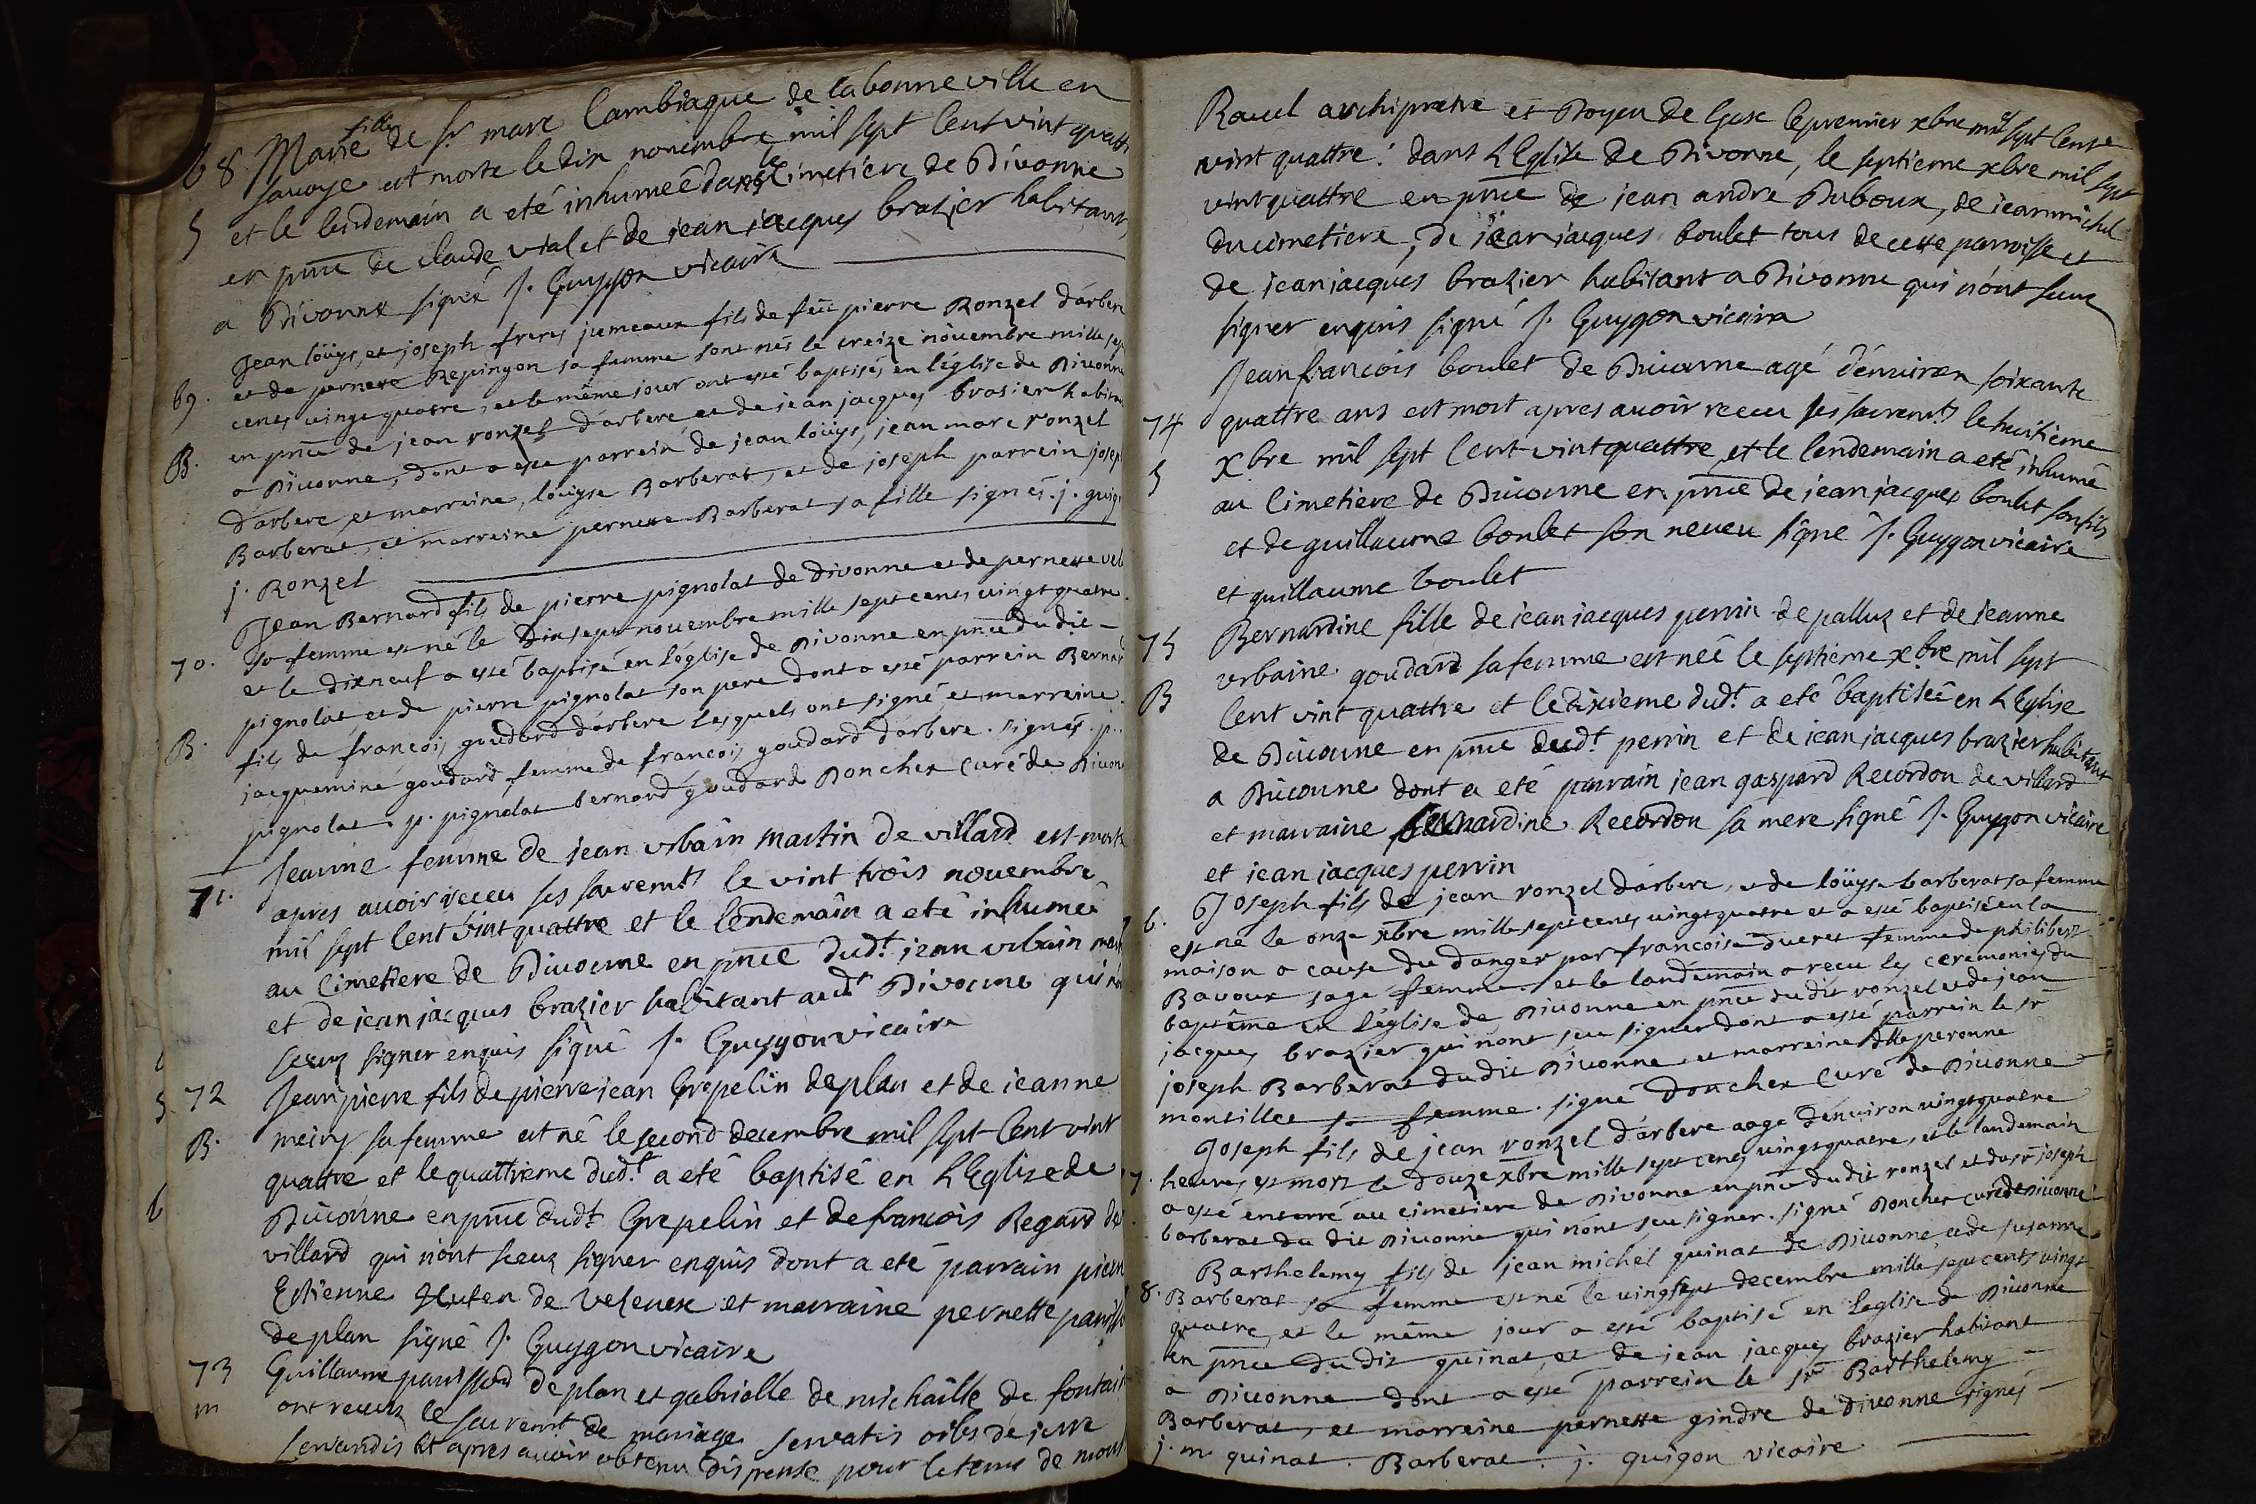 68. Marie fille de Sr. marc Cambiague de la bonne ville en
savoye est morte le dix novembre mil sept Cent vint quattre
S et le lendemain a eté inhumeê dans le Cimetiere de Divonne
en pnce de claude vial et de jean jacques brazier habitants
a Divonne signé J. Guygon vicaire
Jean loüys, et joseph freres jumeaux fils de feu pierre Ronzel d'arbere
69. et de pernete Repingon sa femme sont nés le treize novembre mille sept
cents vingt quatre, et le même jour ont esté baptisés en l'église de Divonne
B. en pnce de jean ronzel d'arbere et de jean jacques brasier habitant
a Divonne, dont a esté parrein de jean loüys, jean marc ronzel
d'arbere et marreine, loüyse Barberat, et de joseph parrein joseph
Barberat, et marreine pernette Barberat sa fille signés. j. guigon
j. Ronzel
Jean Bernard fils de pierre pignolat de Divonne et de pernette
70. sa femme est né le Dix sept novembre mille sept cents vingt quatre
et le dixneuf a esté baptisé en l'église de Divonne en pnce du dit
pignolat et de pierre pignolat son pere dont a esté parrein Bernard
B. fils de françois goudard d'arbere lesquels ont signé, et marreine
jacquemine goudard femme de francois goudard d'arbere. signés. p.
pignolat. p. pignolat bernard goudard Donchex Curé de Divonne
71. Jeanne femme de jean urbain martin de villard est morte
apres avoir receu ses sacremts le vint trois novembre
mil sept Cent vint quattre et le lendemain a eté inhumeê
au Cimetiere de Divonne en pnce dudt. jean urbain martin
et de jean jacques brazier habitant audt Divonne qui n'ont
sceuz signer enquis signé J. Guygon vicaire
72 Jean pierre fils de pierre jean Grepelin de plan et de jeanne
B. meiry sa femme est né le second decembre mil sept Cent vint
quattre et le quattrieme dudt. a eté baptisé en L'Eglise de
Divonne en pnce dudt Grepelin et de francois Regard de
villard qui n'ont sceuz signer enquis dont a eté parrain pierre
Estienne de Velenex et marraine pernette panissod
de plan signé J. Guygon vicaire
73 Guillaume panissod de plan et gabrielle de michaille de fontaine
m ont receuz le sacremt de mariage servatis oibs de jure
servandis et apres avoir obtenu dispense pour le tems de mons
Ravel archipretre et Doyen de Gex le premier xbre mil sept Cent
vint quattre: dans L'Eglise de Divonne, le septieme xbre mil sept
vint quattre en pnce de jean andre Duboux, de jean michel
Ducimetiere, de jean jacques boulet tous de cette parroisse et
de jean jacques brazier habitant a Divonne qui n'ont sceuz
signer enquis signé J. Guygon vicaire
Jean francois boulet de Divonne agé d'environ soixante
74 quattre ans est mort apres avoir receu ses sacremts le huitieme
S xbre mil sept Cent vint quattre et le lendemain a eté inhumé
au Cimetiere de Divonne en pnce de jean jacques boulet son fils
et de guillaume boulet son neveu signé J. Guygon vicaire
et guillaume boulet
75 Bernardine fille de jean jacques perrin de palluz et de jeanne
urbaine goudard sa femme est neê le septieme xbre mil sept
B Cent vint quattre et le dixieme dudt. a eté baptiseê en L'Eglise
de Divonne en pnce dudt perrin et de jean jacques brazier habitant
a Divonne dont a eté parrain jean gaspard Recordon de villard
et marraine bernardine Recordon sa mere signé J. Guygon vicaire
et jean jacques perrin
6. Joseph fils de jean ronzel d'arbere, et de loüyse barberat sa femme
est né le onze xbre mille sept cents vingt quatre et a esté baptisé en la
maison a cause du danger par francoise ducret femme de philibert
Bavoux sage femme et le landemain a recu les ceremonies du
baptême en l'église de Divonne en pnce du dit ronzel et de jean
jacques brazier qui n'ont sceu signer dont a esté parrein le sr
joseph Barberat du dit Divonne et marreine dlle peronne
montillet sa femme. signé Donchex Curé de Divonne
Joseph fils de jean ronzel d'arbere aagé d'environ vingt quatre
7. heures est mort le douze xbre mille sept cents vingt quatre, et le landemain
a esté enterré au cimetiere de Divonne en pnce du dit ronzel et du sr joseph
barberat du dit Divonne qui n'ont sceu signer. signé Donchex curé de Divonne
Barthelemy fils de jean michel quinat de Divonne et de susanne
8. Barberat sa femme est né le vingt sept decembre mille sept cents vingt
quatre, et le même jour a esté baptisé en l'eglise de Divonne
en pnce du dit quinat, et de jean jacques brazier habitant
a Divonne dont a esté parrein le sr Barthelemy
Barberat, et marreine pernette gindre de Divonne signés
j. m quinat. Barberat. j. guigon vicaire